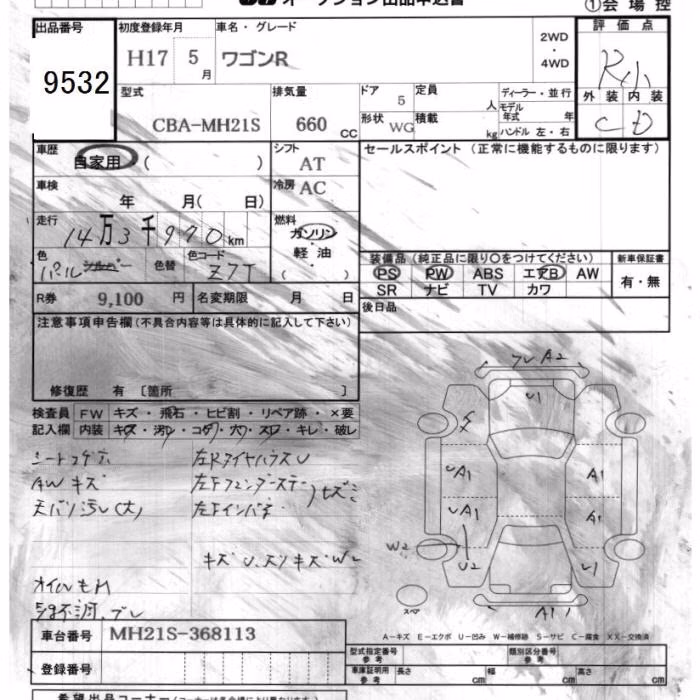 オークション出品申込書
①会場控
出品番号 初度登録年月 車名・グレード 2WD・4WD 評価点
9532 H17 5月 ワゴンR R小
型式 排気量 ドア 定員 ディーラー・並行 外装 内装
CBA-MH21S 660 CC 5 人 モデル年式 年 C D
形状 WG 積載 kg ハンドル 左・右
車歴 シフト セールスポイント (正常に機能するものに限ります)
自家用 ( ) AT
車検 年 月( 日) 冷房 AC
走行 14万3千970km 燃料 ガソリン
軽油
( )
色 パール シルバー 色替 色コード Z7T
装備品 (純正品に限り○をつけてください) 新車保証書
PS PW ABS エアB AW 有・無
SR ナビ TV カワ
R券 9,100 円 名変期限 月 日 後日品
注意事項申告欄(不具合内容等は具体的に記入して下さい)
修復歴 有 [箇所 ]
検査員 FW キズ・飛石・ヒビ割・リペア跡・×要
記入欄 内装 キズ・汚レ・コゲ・穴・スレ・キレ・破レ
シートコゲ穴 左Rタイヤハウス U
AW キズ 左Fフェンダーステー
天バリ汚レ(大) 左Fインパネ
キズ U、スリキズ W2
オイルモレ
フレ A2
U1
UA1 A1
UA1 A1
W2 U2 U1
A1
スペア
A-キズ E-エクボ U-凹み W-補修跡 S-サビ C-腐食 XX-交換済
車台番号 MH21S-368113
登録番号
型式指定番号 参考 類別区分番号 参考
車庫証明用 参考 長さ cm 幅 cm 高さ cm
希望出品コーナー